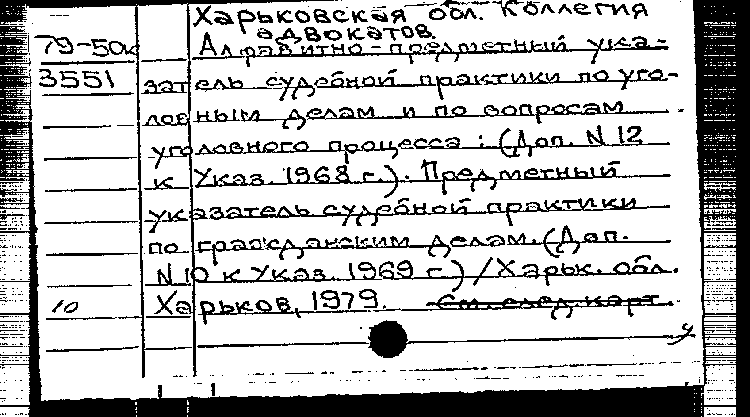 Харьковская обл. Коллегия
адвокатов.
79-50к Алфавитно-предметный ука-
3551 затель судебной практики по уго-
ловным делам и по вопросам
уголовного процесса: (Доп. N 12
к Указ. 1968 г.). Предметный
указатель судебной практики
по гражданским делам. (Доп.
N 10 к Указ. 1969 г.) / Харьк. обл.
10 Харьков, 1979. См. след. карт.